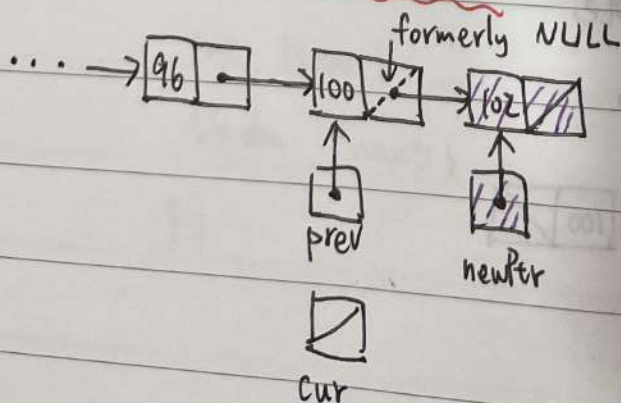 formerly NULL
.... 96 100 102
prev
newPtr
cur